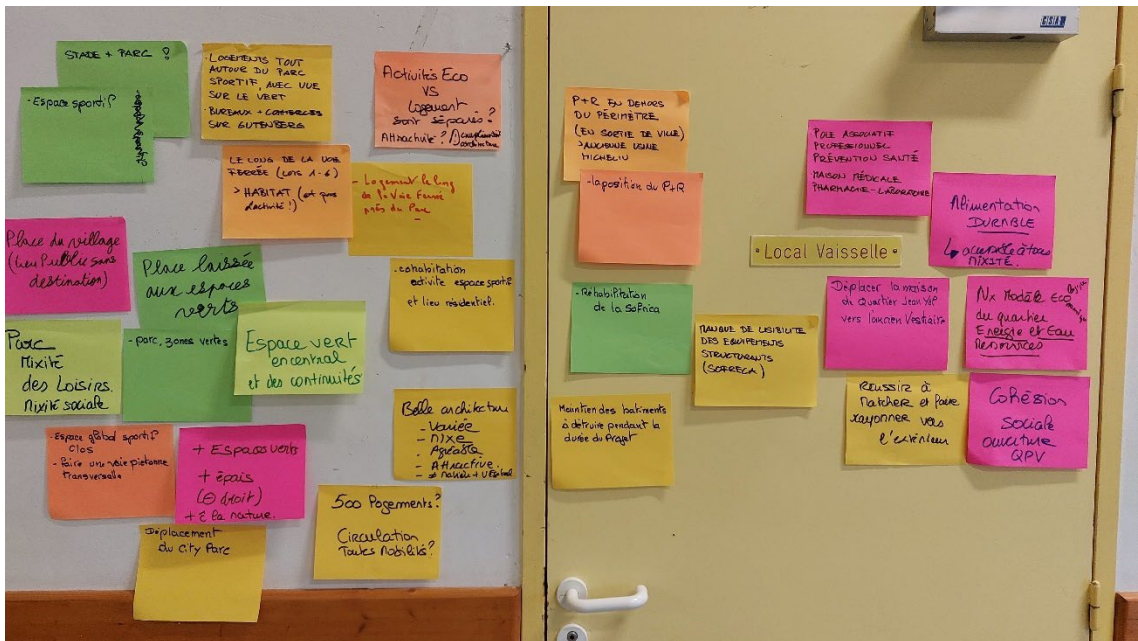 STADE + PARC !
- Espace sportif
- LOGEMENTS TOUT
AUTOUR DU PARC
SPORTIF, AVEC VUE
SUR LE VERT
- BUREAUX + COMMERCES
SUR GUTENBERG
Activités Eco
VS
Logement
sont séparés ?
Attractivité ?
LE LONG DE LA VOIE
FERRÉE (LOTS 1-6)
> HABITAT (et pas
d'activité !)
- Logement le long
de la Voie Ferrée
près du Parc
Place du village
(Lieu Public sans
destination)
Place laissée
aux espaces
verts
- cohabitation
activite espace sportif
et lieu résidentiel.
Parc
Mixité
des Loisirs.
Mixité sociale
- parc, zones vertes
Espace vert
en central
et des continuités
Belle architecture
- Variée
- Mixe
- Agréable
- Attractive.
- Espace global sportif
clos
- Faire une voie piétonne
transversale
+ Espaces verts
+ épais
(⊖ droit)
+ à la nature.
500 logements ?
Circulation
Toutes Mobilités ?
Déplacement
du City Parc
P+R EN DEHORS
DU PÉRIMÈTRE
(EN SORTIE DE VILLE)
> ANCIENNE USINE
MICHELIN
- la position du P+R
- Réhabilitation
de la Sofrica
MANQUE DE LISIBILITE
DES EQUIPEMENTS
STRUCTURANTS
(SOFRECA)
Maintien des batiments
à détruire pendant la
durée du Projet
POLE ASSOCIATIF
PROFESSIONNEL
PRÉVENTION SANTÉ
MAISON MÉDICALE
PHARMACIE - LABORATOIRE
Alimentation
DURABLE
↳ accessible à tous
MIXITÉ.
Local Vaisselle
Déplacer la maison
de Quartier Jean
vers l'ancien Vestiaire
Nx Modèle Eco
du quartier
Energie et Eau
Ressources
REUSSIR à
Matcher et faire
rayonner vers
l'extérieur
Cohésion
Sociale
ouverture
QPV